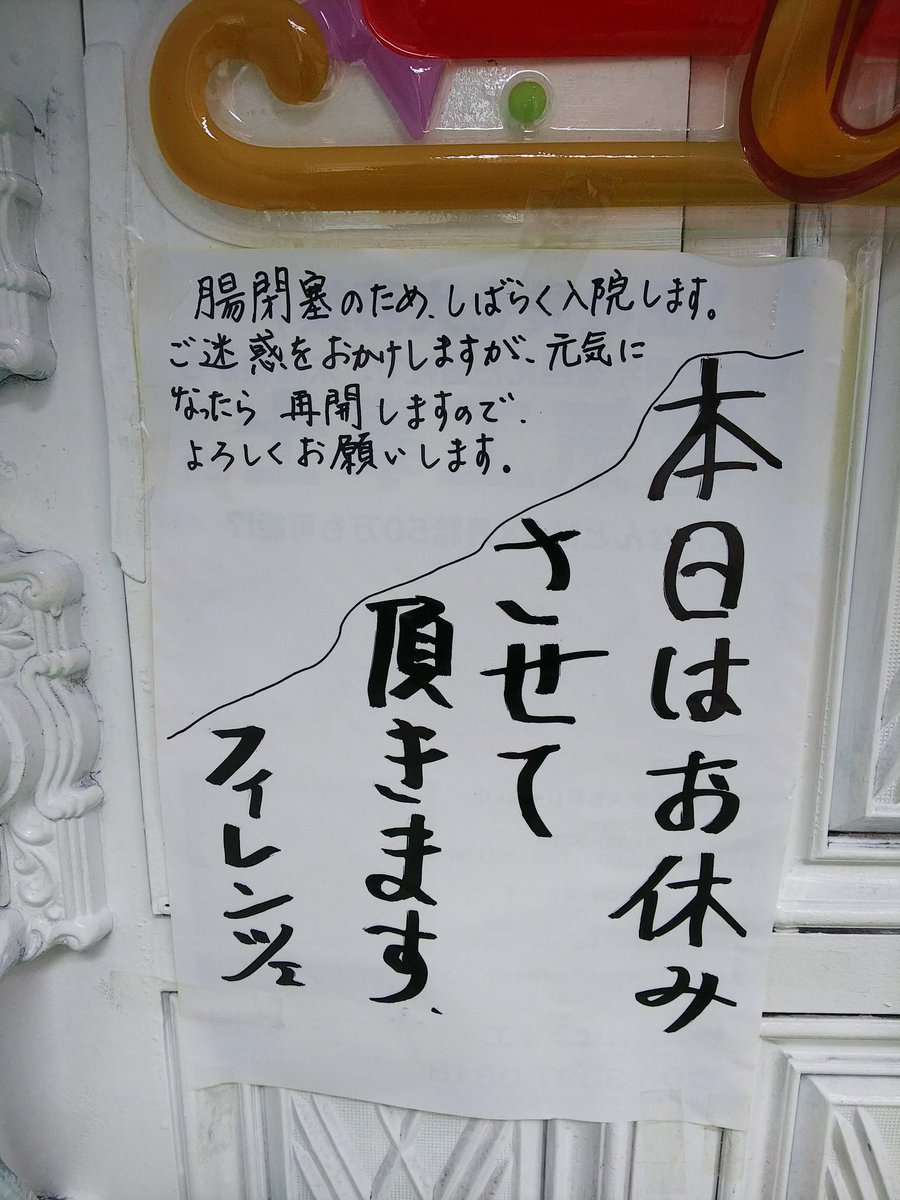 腸閉塞のため、しばらく入院します。
ご迷惑をおかけしますが、元気に
なったら再開しますので、
よろしくお願いします。
本日はお休み
させて
頂きます、
フィレンツェ